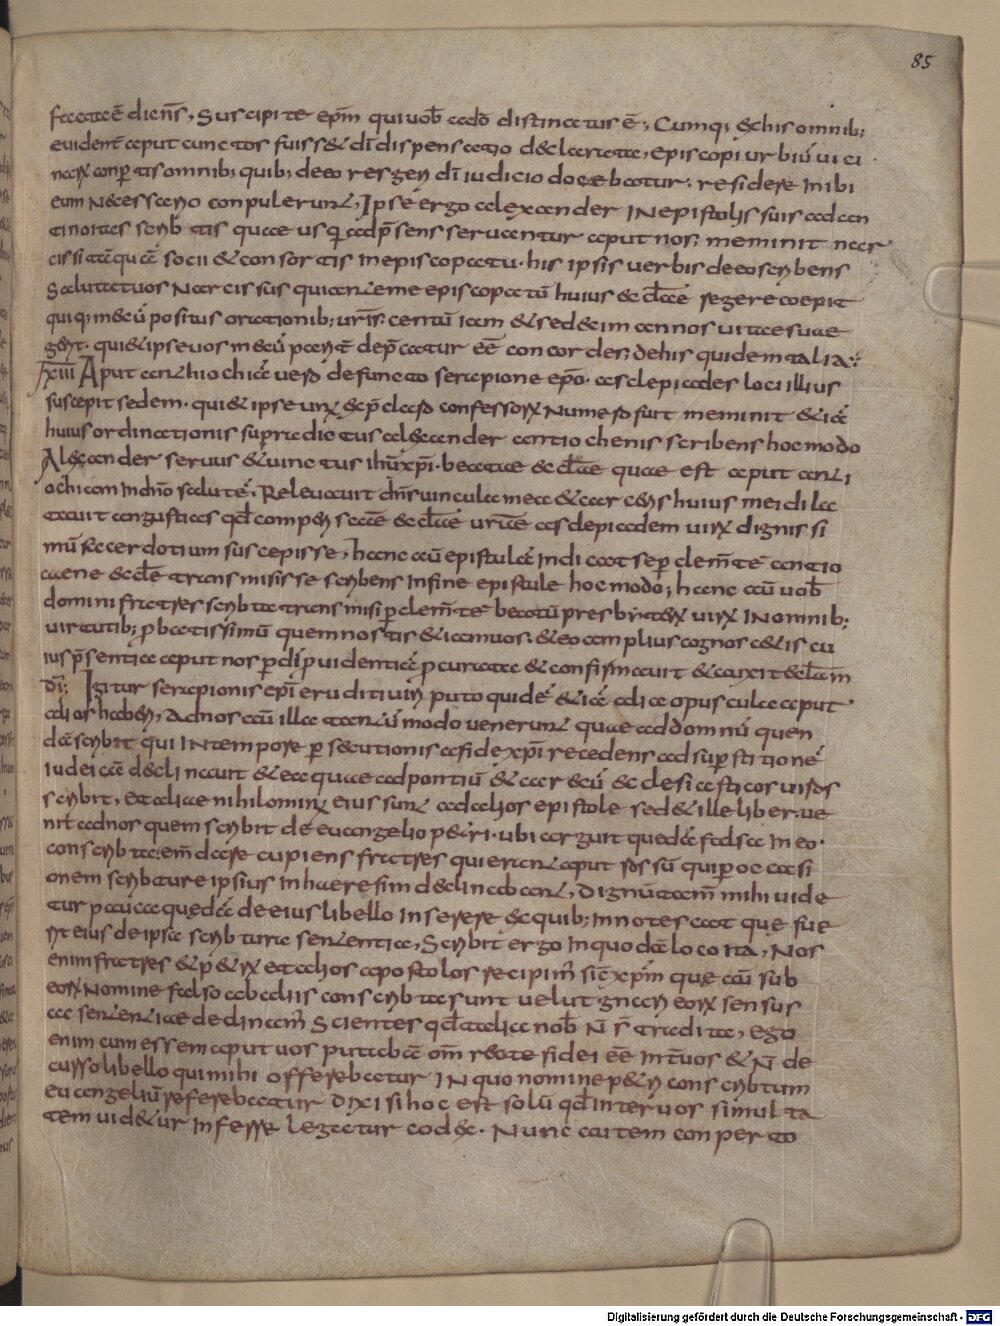 85
facta ē dicens, Suscipite epm̄ qui vob̄ a dō distinatus ē; Cumq; & his omnib;
evident̄ aput cunctos fuiss& dī dispensatio declarata, episcopi urbiū vici
narꝝ conꝑtis omnib; quib; de eo res gerī dī iudicio docebatur; residere inibi
eum necessario conpulerunt, Ipse ergo alexander in epistolis suis ad an
tinoitas scrib tis quae usq; ad p̄sens servantur aput nos; meminit nar
cissi tāquā socii & consortis in episcopatu. his ipsis verbis de eo scribens
Salutat vos narcissus qui ante me episcopatū huius aecl̄ae regere coepit
qui q; mecū positus orationib; vrīs. centū iam & sedecim annos vitae suae
gerit. qui & ipse vos mecū parit̄ dep̄catur eē concordes; de his quidem talia;
xiii Aput anthiochiā vero defuncto serapione epō. asclepiades loci illius
suscepit sedem. qui & ipse unꝰ & p̄claro confessorꝝ numero fuit meminit & iā
huius ordinationis supra dictus alexander antiochenis scribens hoc modo
Alexander servus & vinctus ihū xp̄i. beatae aecl̄ae quae est aput anti
ochiam in dn̄o salutē. Relevavit dn̄s vincula mea & carceris huius mei dila
tavit angustias qd̄ comperi sc̄ae aecl̄ae vr̄ae asclepiadem virꝝ dignissi
mū sacerdotium suscepisse, hanc aū epistulā indicat se ꝑ clem̄tē antio
caene aecl̄e transmisisse scribens in fine epistule hoc modo; hanc aū vob̄
domini fratres scribta transmisi ꝑ clem̄tē beatū presbyterꝝ virꝝ in omnib;
virtutib; ꝓbatissimū quem nostis & iam vos. & eo amplius cognoscetis cu
ius p̄sentia aput nos ꝑ dī ꝓvidentiā ꝓcurata & confirmavit & auxit aecl̄am
dī; Igitur serapionis epī eruditium puto quidē & iā alia opuscula aput
alios haberi, Ad nos aū illa tantū modo venerunt quae ad domnū quen
dā scribit qui in tempore ꝑsecutionis a fide xp̄i recedens ad suꝑstitionē
iudeicā declinavit & ea quae ad pontiū & carecū aeclesiasticos viros
scribit, & aliae nihilominꝰ eius sunt ad alios epistole sed & ille liber. ve
nit ad nos quem scribit de euangelio petri. ubi arguit quedā falsa in eo.
conscribta; em̄dare cupiens fratres qui erant aput ros sū qui ꝑ occasi
onem scribture ipsius in haeresim declinabant, Dignū tam̄ mihi vide
tur pauca quedā de eius libello inserere ex quib; innotescat que fue
rit eius de ipsa scribtura sententia, Scribit ergo in quodā loco ita, Nos
enim fratres & petꝝ & alios apostolos recipim̄ sic xp̄m que aū sub
eorꝝ nomine falso ab aliis conscribta sunt velut gnari eorꝝ sensus
ac sententiae declinam̄ Scientes qd̄ talia nob̄ n̄ s̄ tradita, ego
enim cum essem aput vos putabā om̄ recte fidei eē int̄ vos & n̄ de
curso libello qui mihi offerebatur in quo nomine petri conscribtum
euangeliū referebatur dixi si hoc est solū qd̄ inter vos simulta
tem videtur inferre legatur codex. Nunc autem conperto
Digitalisierung gefördert durch die Deutsche Forschungsgemeinschaft - DFG